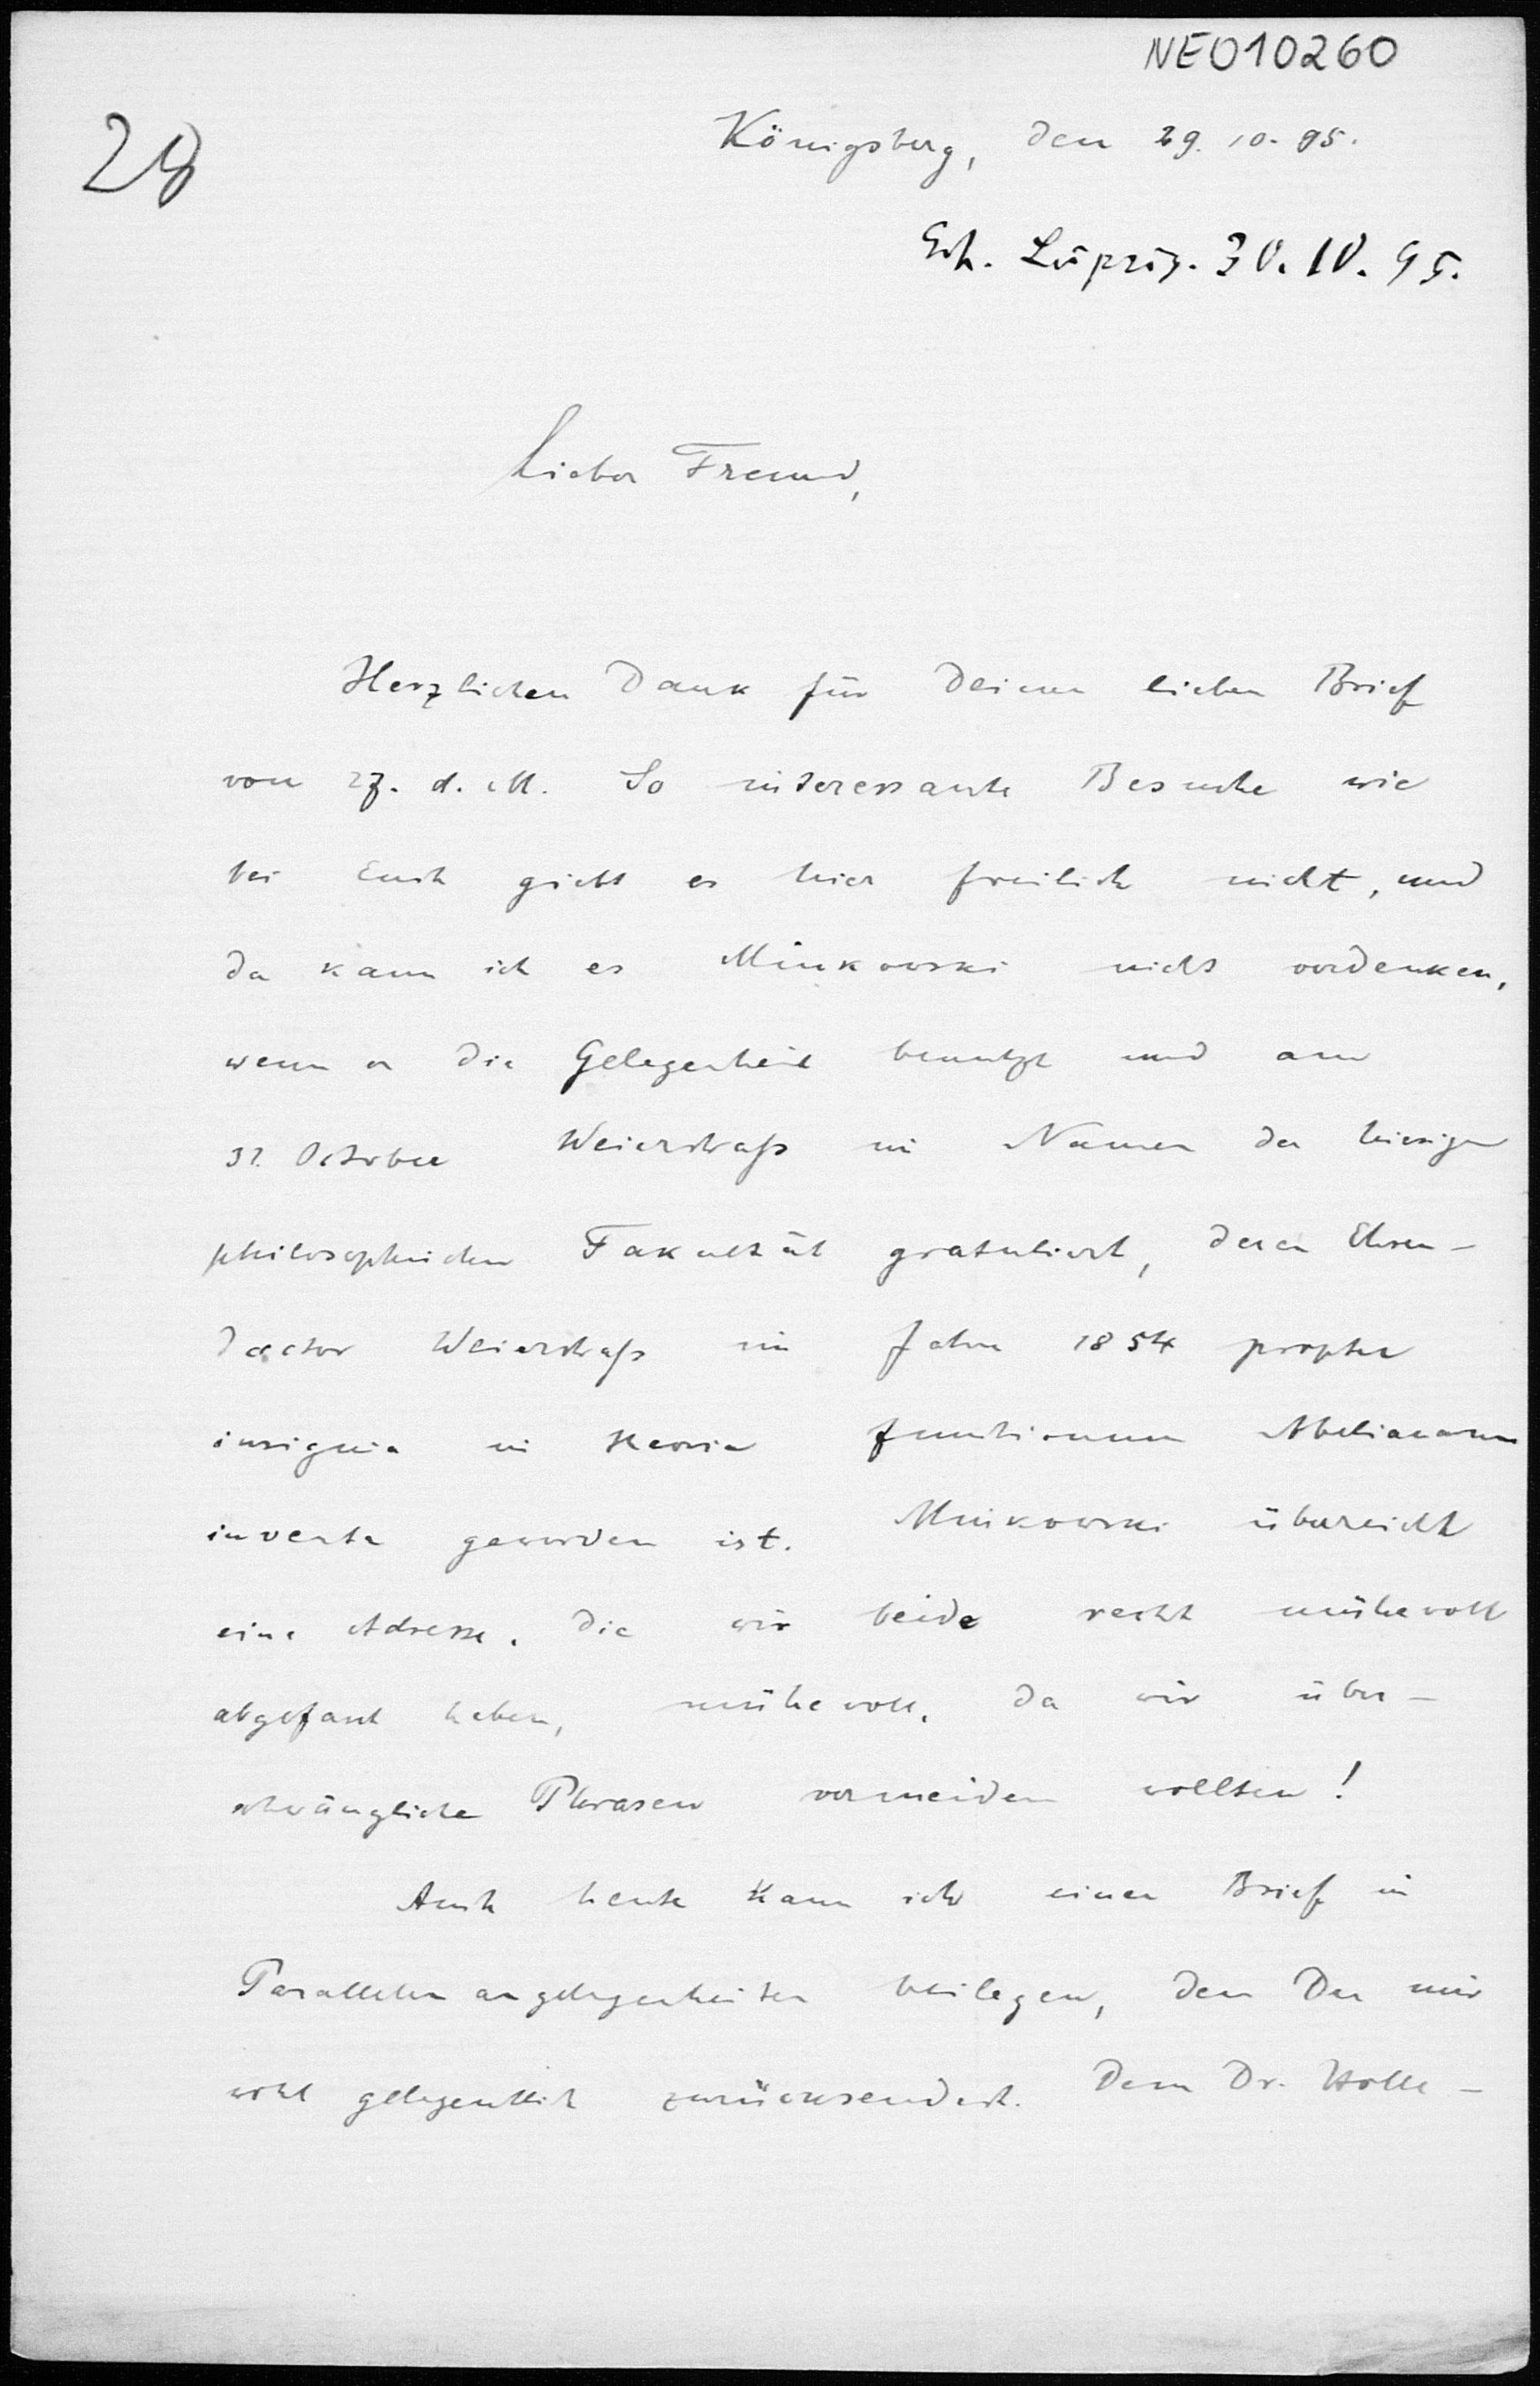 NE010260
28
Königsberg, den 29. 10. 95.
Erh. Leipzig. 30. 10. 95.
Lieber Freund,
Herzlichen Dank für Deinen lieben Brief
vom 27. d. M. So interessante Besuche wie
bei Euch giebt es hier freilich nicht, und
da kann ich es Minkowski nicht verdenken,
wenn er die Gelegenheit benutzt und am
31. October Weierstraß im Namen der hiesigen
philosophischen Fakultät gratuliert, deren Ehren-
doctor Weierstraß im Jahre 1854 propter
insignia in theoria functionum Abelianarum
inventa geworden ist. Minkowski überreicht
eine Adresse, die wir beide recht mühevoll
abgefasst haben, mühevoll, da wir über-
schwängliche Phrasen vermeiden wollten!
Auch heute kann ich einen Brief in
Parallelenangelegenheiten beilegen, den Du mir
wohl gelegentlich zurücksendest. Dem Dr. Holle-